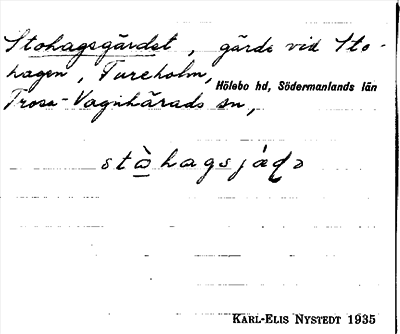 Stohagsgärdet, gärde vid Sto-
hagen, Tureholm,
Hölebo hd, Södermanlands län
Trosa-Vagnhärads sn,
stå̀hagsjàḍə
KARL-ELIS NYSTEDT 1935